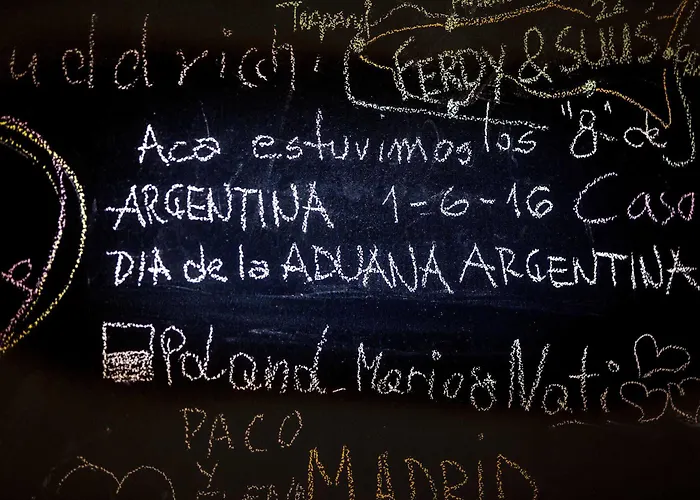 uddrich
FERDY & SUUS
Aca estuvimos los "8" de
ARGENTINA 1-6-16 Casa
DIA de la ADUANA ARGENTINA
Poland Marios Nati
PACO
Y
MADRID